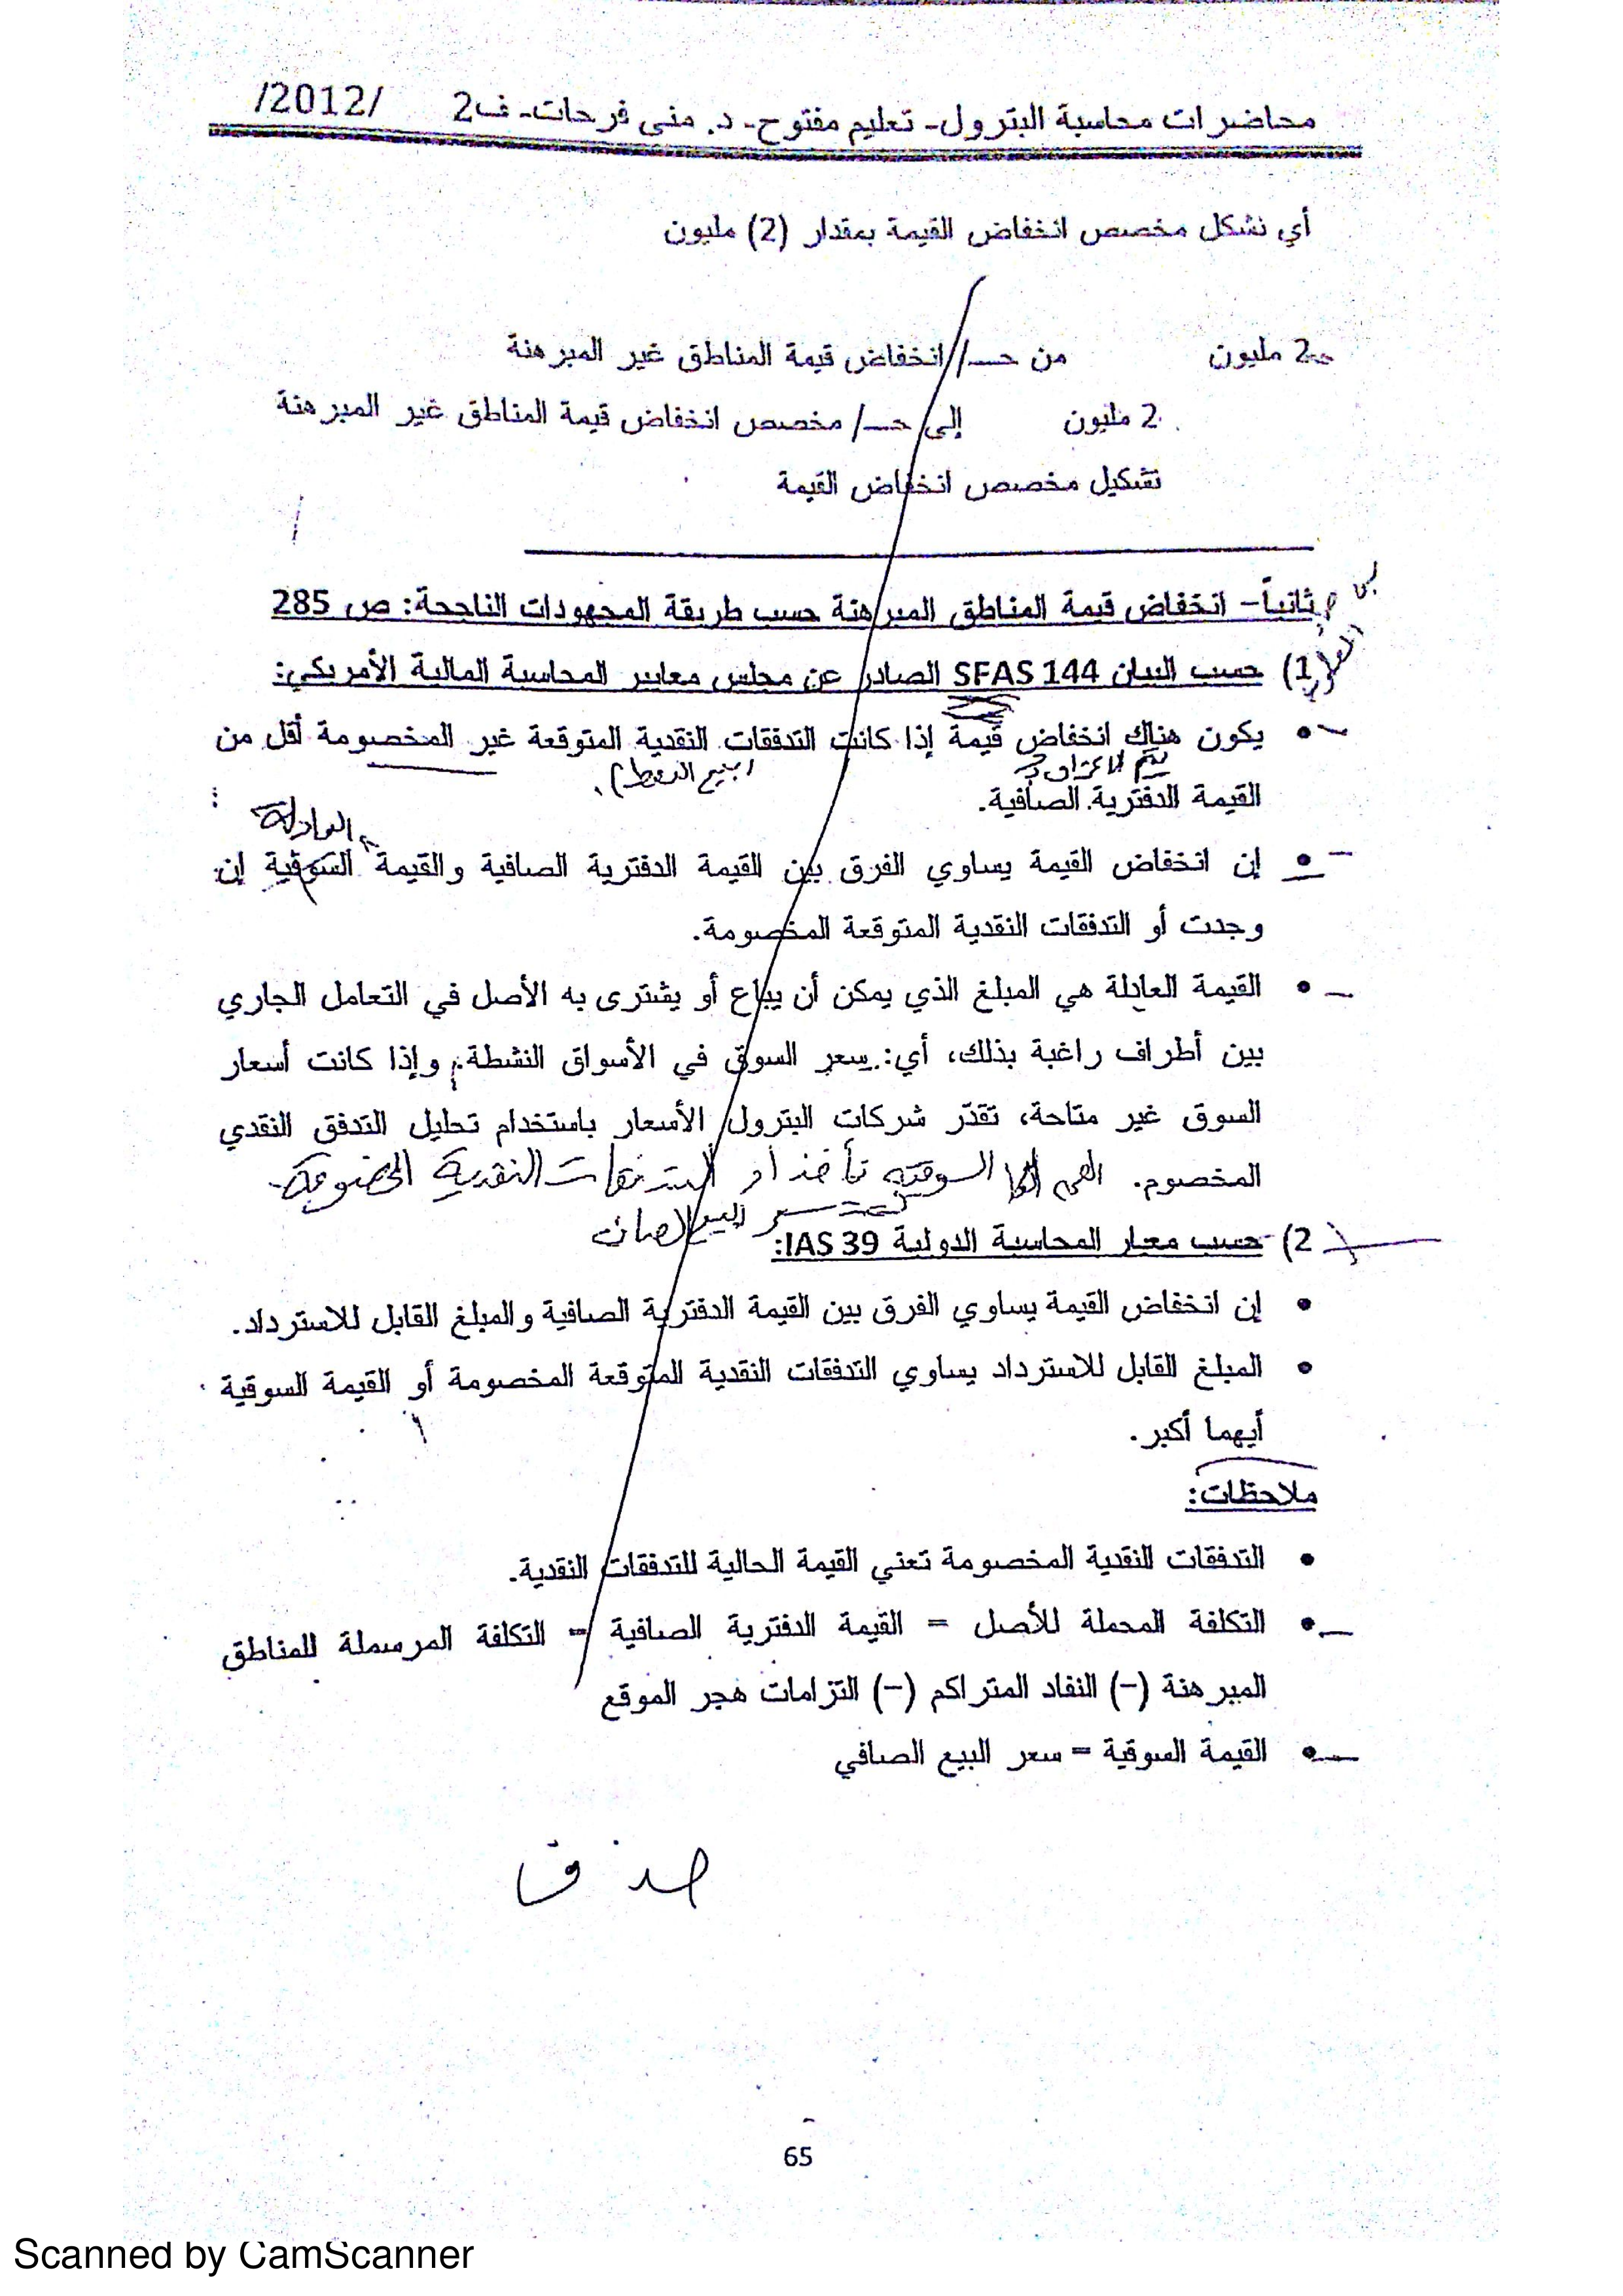 محاضرات محاسبة البترول- تعليم مفتوح- د. منى فرحات- ف2 /2012/
أي نشكل مخصص انخفاض القيمة بمقدار (2) مليون
2 مليون من حـ/ انخفاض قيمة المناطق غير المبرهنة
2 مليون إلى حـ/ مخصص انخفاض قيمة المناطق غير المبرهنة
تشكيل مخصص انخفاض القيمة
ثانياً- انخفاض قيمة المناطق المبرهنة حسب طريقة المجهودات الناجحة: ص 285
1) حسب البيان SFAS 144 الصادر عن مجلس معايير المحاسبة المالية الأمريكي:
• يكون هناك انخفاض قيمة إذا كانت التدفقات النقدية المتوقعة غير المخصومة أقل من
يتم الاعتراف (بيع النفط).
القيمة الدفترية الصافية.
العادلة
• إن انخفاض القيمة يساوي الفرق بين القيمة الدفترية الصافية والقيمة السوقية إن
وجدت أو التدفقات النقدية المتوقعة المخصومة.
• القيمة العادلة هي المبلغ الذي يمكن أن يباع أو يشترى به الأصل في التعامل الجاري
بين أطراف راغبة بذلك، أي: سعر السوق في الأسواق النشطة، وإذا كانت أسعار
السوق غير متاحة، تقدّر شركات البترول الأسعار باستخدام تحليل التدفق النقدي
المخصوم. السوقية تأخذ أو التدفقات النقدية المخصومة
سعر البيع الصافي
2) حسب معيار المحاسبة الدولية IAS 39:
• إن انخفاض القيمة يساوي الفرق بين القيمة الدفترية الصافية والمبلغ القابل للاسترداد.
• المبلغ القابل للاسترداد يساوي التدفقات النقدية المتوقعة المخصومة أو القيمة السوقية
أيهما أكبر.
ملاحظات:
• التدفقات النقدية المخصومة تعني القيمة الحالية للتدفقات النقدية.
• التكلفة المحملة للأصل = القيمة الدفترية الصافية = التكلفة المرسملة للمناطق
المبرهنة (-) النفاد المتراكم (-) التزامات هجر الموقع
• القيمة السوقية = سعر البيع الصافي
65
Scanned by CamScanner